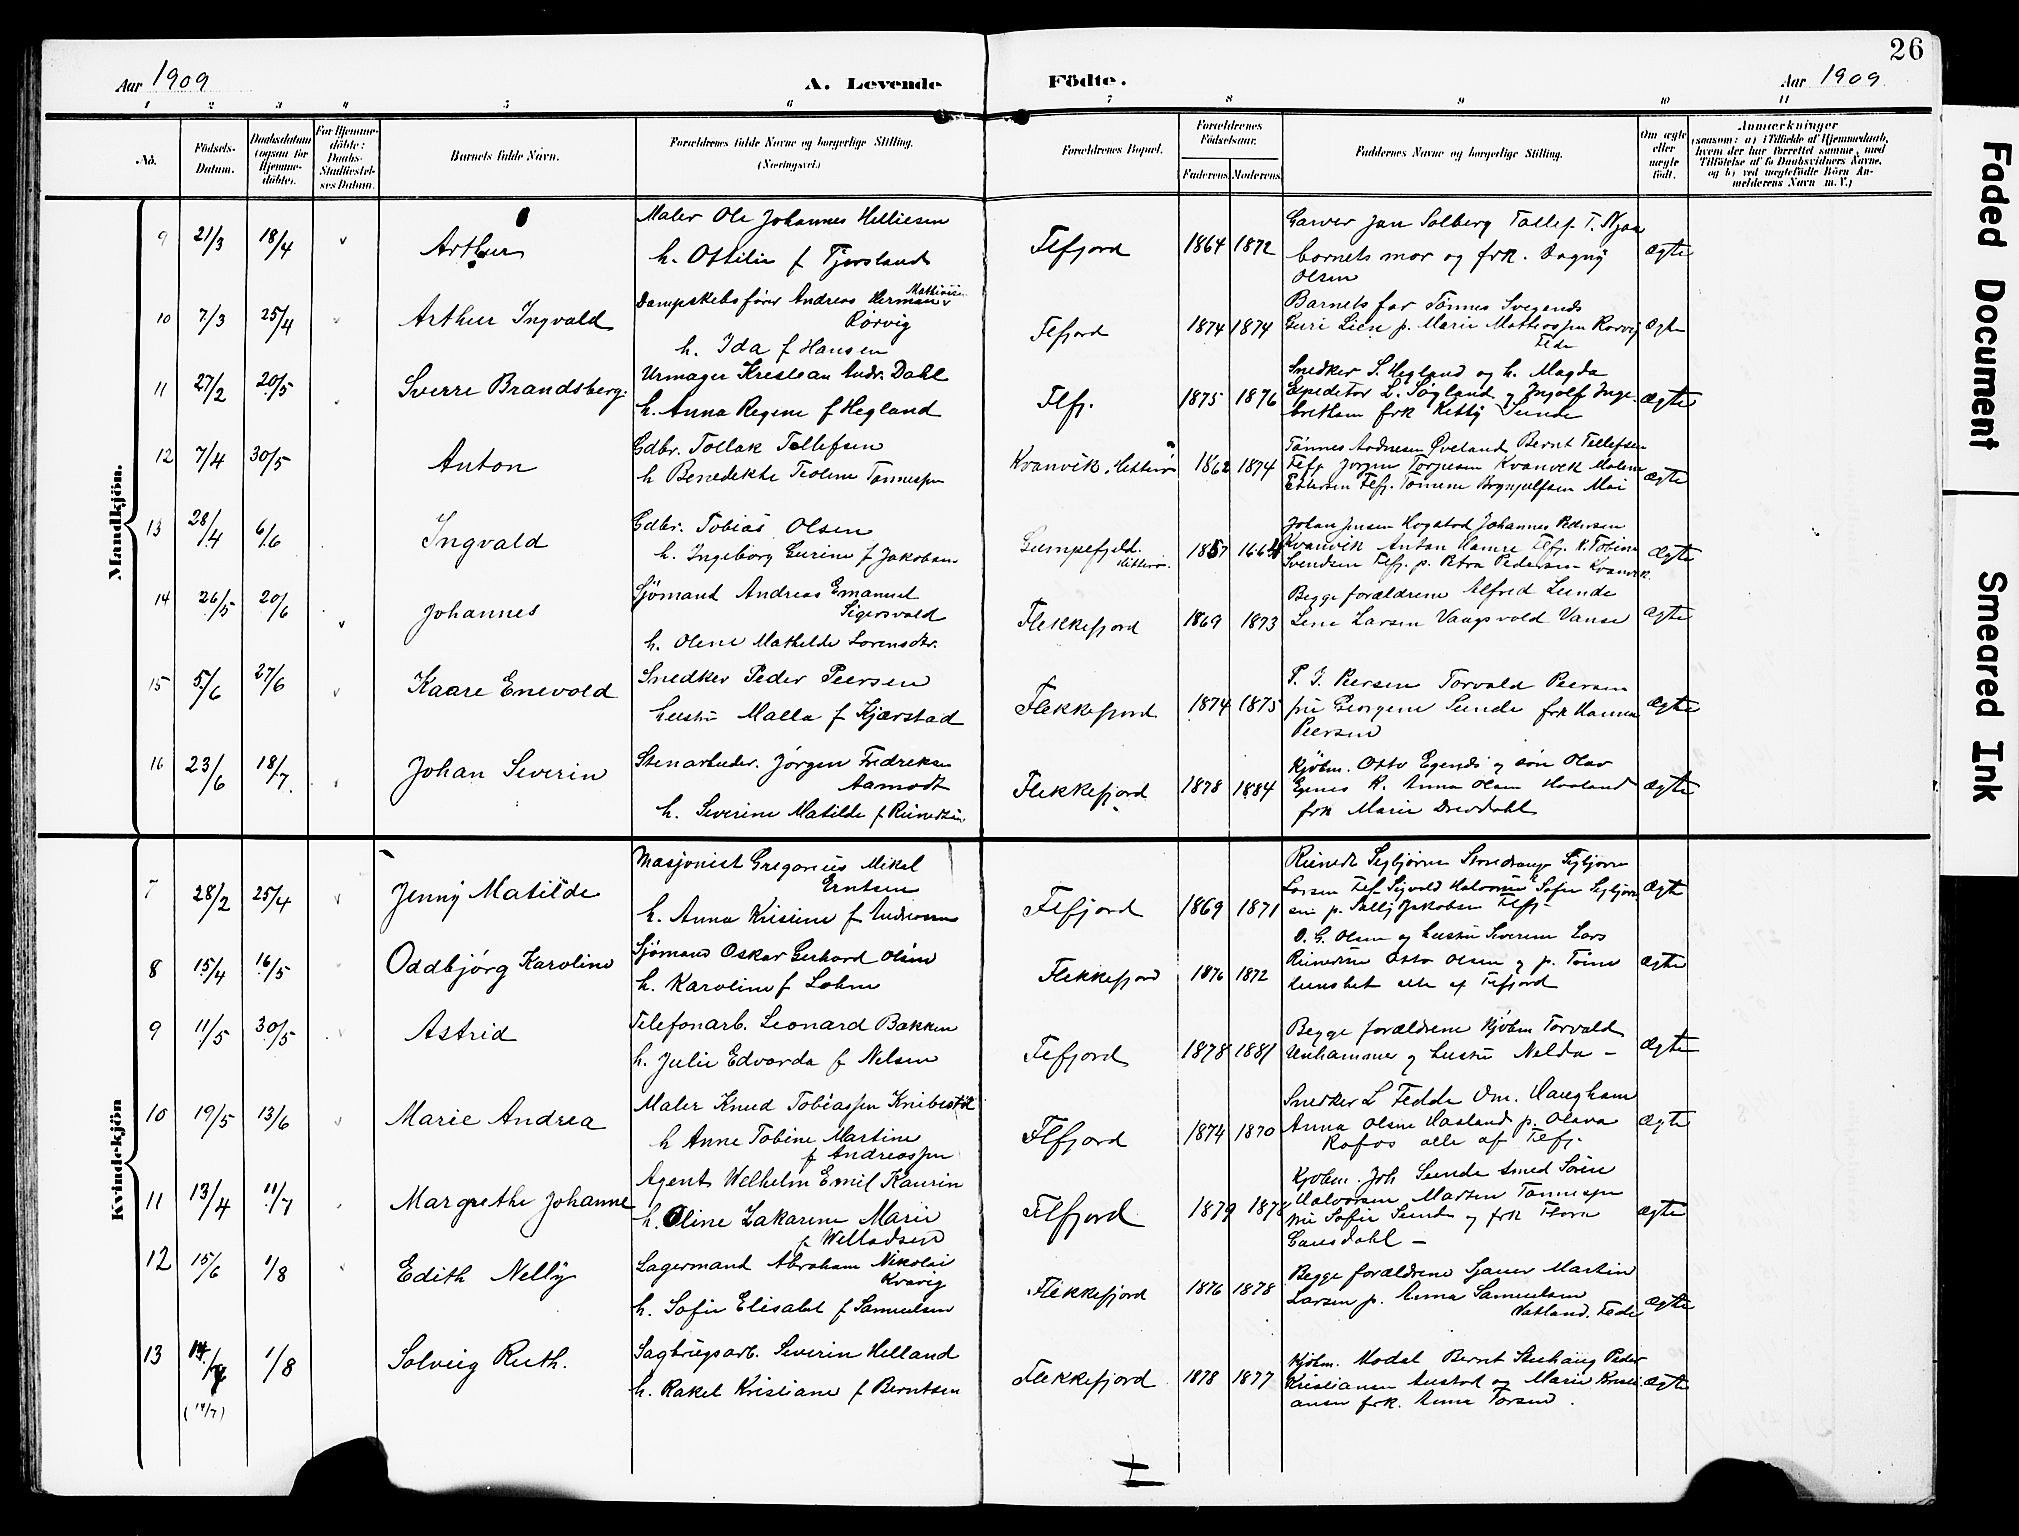 26
Aar 1909
A. Levende Födte.
Aar 1909
1 2 3 4 5 6 7 8 9 10 11
No.
Födsels-Datum.
Daabsdatum (ogsaa for Hjemmedöbte).
For Hjemmedöbte: Daabs-Stadfæstelses Datum.
Barnets fulde Navn.
Forældrenes fulde Navne og borgerlige Stilling. (Næringsvei.)
Forældrenes Bopæl.
Forældrenes Födselsaar.
Faderens Moderens
Faddernes Navne og borgerlige Stilling.
Om ægte eller uægte födt.
Anmærkninger
(saasom: a) i Tilfælde af Hjemmedaab, hvem der har forrettet samme, med Tilföielse af to Daabsvidners Navne, og b) ved uægtefödte Börn Anmelderens Navn m. V.)
Mandkjön.
9 21/3 18/4 v Arthur
Maler Ole Johannes Helliesen
h. Ottilie f Tjorsland
Flfjord 1864 1872
Garver Jan Solberg Tallef T.
barnets mor og frk. Dagny
Olsen
ægte
10 7/3 25/4 v Arthur Ingvald
Dampskibsfører Andreas Herman
Rørvig
h. Ida f Hansen
Flfjord 1874 1874
Barnets far Tønnes Svegends
Guri Lien p. Marie Rørvig
Feda
ægte
11 27/2 20/5 Sverre Brandsberg
Urmager Kristian Andr. Dahl
h. Anna Regine f Hegland
Flfj. 1875 1876
Snedker S. Hegland og h. Magda
Expeditør L. Søgland og Ingolf Inge-
bretsen frk Ketty Sunde
ægte
12 7/4 30/5 Anton
Gdbr. Tollak Tollefsen
h Benedikte Teoline Tønnespn
Kvanvik, Hitterø 1862 1874
Tønnes Andresen Øveland Bernt Tollefsen
Flfj Jørgen Torjesen Kvanvik Malene
Petersen Flfj. Tomine Brynjulfsen Moi
ægte
13 28/4 6/6 Ingvald
Gdbr. Tobias Olsen
h. Ingeborg Gurine f Jakobsen
Gumpefjeld. Hitterø. 1857
Johan Jensen Hogstad Johannes Pedersen
Kvanvik Anton Hamre Flfj. K. Tobine
Svendsen Flfj. p. Petra Pedersen Kvanvik.
ægte
14 26/5 20/6 v Johannes
Sjømand Andreas Emanuel
Sigersvold
h. Oline Mathilde Lorensdtr.
Flekkefjord 1869 1873
Begge forældrene Alfred Sunde
Lene Larsen Vaagsvold Vanse
ægte
15 5/6 27/6 v Kaare Enevold
Snedker Peder Peersen
hustru Malla f Kjærstad
Flekkefjord 1874 1875
P. J. Peersen Torvald Peersen
fru Georgine Sunde frk Hanna
Peersen
ægte
16 23/6 18/7 Johan Severin
Stenarbeider. Jørgen Fredriksen
Aamodt
h. Severine Matilde f Reinertsen
Flekkefjord 1878 1884
Kjøbm. Otto Egenes og søn Olav
Egenes K. Anna Olsen Haaland
frk Marie Drevdahl
ægte
Kvindekjön
7 28/2 25/4 v Jenny Matilde
Masjonist Gregorius Mikal
Erntsen
h. Anna Kristine f Andreassen
Flfjord 1869 1871
Reinert Sigbjørn Strædrange Sigbjørn
Larsen Flfj Sigvald Halvorsen Sofie Sigbjørn
sen p. Sally Jakobsen Flfj-
ægte
8 15/4 16/5 Oddbjørg Karoline
Sjømand Oskar Gerhard Olsen
h. Karoline f Lohne
Flekkefjord 1876 1872
O. G. Olsen og hustru Severine Lars
Reinertsen Otto Olsen og p. Tone
alle af Flfjord
ægte
9 11/5 30/5 v Astrid
Telefonarb. Leonard Bakken
h. Julie Edvarda f Nelsen
Flfjord 1878 1881
Begge forældrene Kjøbm Torvald
Unhammer og hustru Nelda -
ægte
10 19/5 13/6 v Marie Andrea
Maler Knud Tobiaspn Knibestøl
h Anne Tobine Martine
f Andreaspn
Flfjord 1874 1870
Snedker L Fedde Om. Haugham
Anna Olsen Haaland p. Olava
Rafos alle af Flfj-
ægte
11 13/4 11/7 Margrethe Johanne
Agent Wilhelm Emil Kaurin
h. Oline Zakarine Marie
f Welladsen
Flfjord 1879 1878
Kjøbm. Joh Sunde smed Søren
Halvorsen Martin Tønnespn
fru Sofie Sunde og frk Flora
Gausdahl -
ægte
12 15/6 1/8 v Edith Nelly
Lagermand Abraham Nikolai
Kvavig
h. Sofie Elisabet f Samuelsen
Flekkefjord 1876 1878
Begge forældrene Gjaver Martin
Larsen p. Anna Samuelsen
Vatland. Feda
ægte
13 14/7 1/8 Solveig Ruth.
(14/7)
Sagbrugsarb. Severin Helland
h. Rakel Kristiane f Berntsen
Flekkefjord 1878 1877
Kjøbm. Modal Bernt Stuhaug Peder
Kristiansen Austad og Marie Kristi-
ansen frk. Anna Torsen.
ægte
Faded Document
Smeared Ink